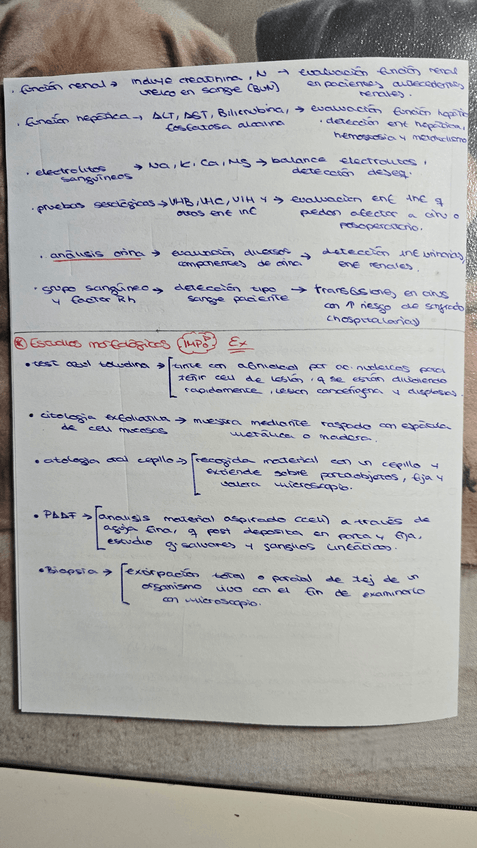 · función renal → incluye creatinina, N → evaluación función renal
ureico en sangre (BUN) en pacientes, antecedentes
renales.
· función hepática → ALT, AST, Bilirrubina, → evaluación función hepática
fosfatasa alcalina · detección enf hepática,
hemostasia y metabolismo
· electrolitos → Na, K, Ca, Mg → balance electrolitos,
sanguíneos detección deseq.
· pruebas serológicas → VHB, VHC, VIH y → evaluacion enf inf q
otras enf inf pueden afectar a ciru o
posoperatorio.
· análisis orina → evaluación diversos → detección inf urinarias,
componentes de orina enf renales.
· grupo sanguíneo → detección tipo → transfusiones en cirus
y factor Rh sangre paciente con ↑ riesgo de sangrado
(hospitalarias)
* Estudios morfológicos IMPO Ex
• test azul toluidina → tinte con afinidad por ac. nucleicos para
teñir cell de lesión, q se están dividiendo
rapidamente, lesion cancerígena y displasias.
• citología exfoliativa → muestra mediante raspado con espátula
de cell mucosas metálica o madera.
• citología oral cepillo → recogida material con un cepillo y
extiende sobre portaobjetos, fija y
valora microscopio.
• PAAF → analisis material aspirado (cell) a través de
aguja fina, q post deposita en porta y fija,
estudio g. salivares y ganglios linfáticos.
• Biopsia → extirpación total o parcial de tej de un
organismo vivo con el fin de examinarlo
con microscopio.